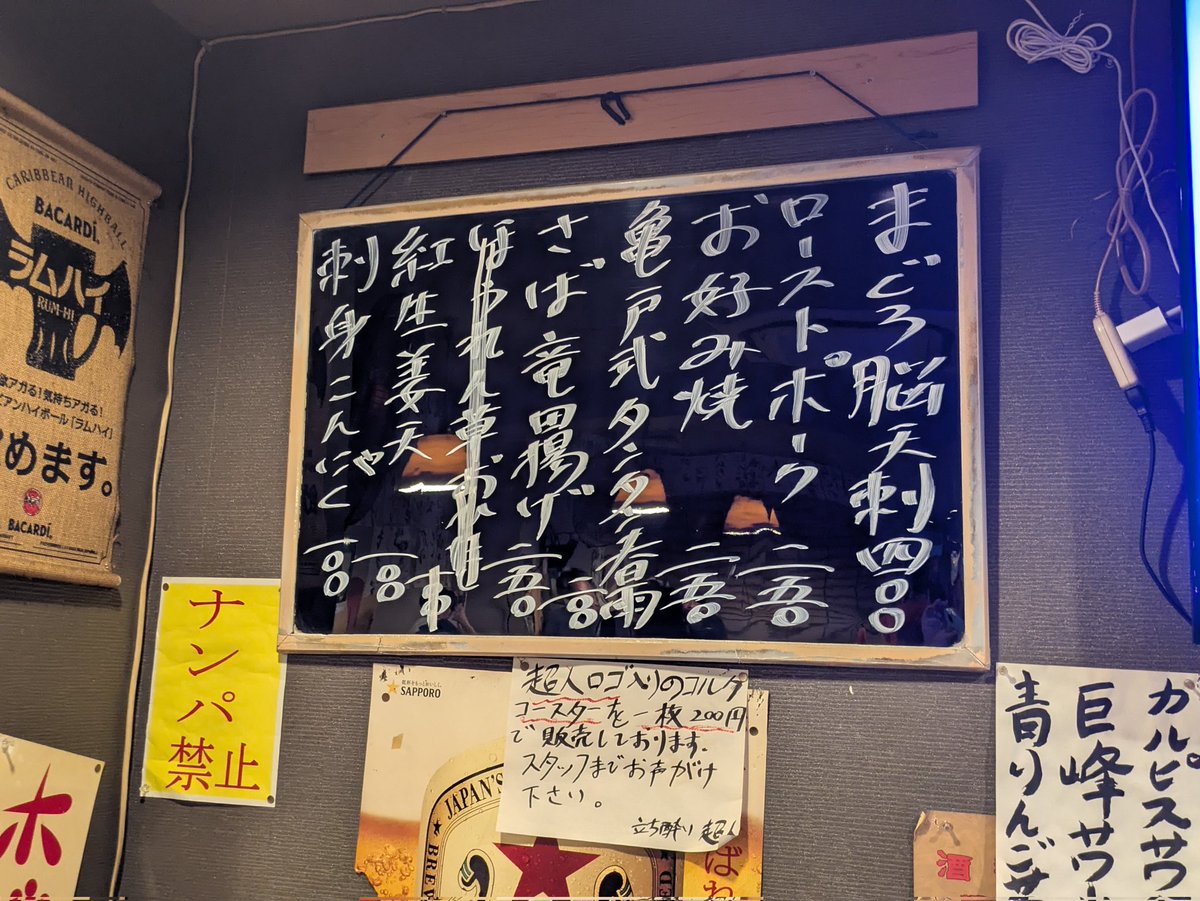 まぐろ脳天刺 四〇〇
ローストポーク 二五〇
お好み焼 二五〇
亀戸式タンタン春雨 一八〇
さば竜田揚げ 二五〇
紅生姜天 一八〇
刺身こんにゃく 一〇〇
CARIBBEAN HIGHBALL
BACARDÍ.
ラムハイ
RUM-HI
アガる!気持ちアガる!
ビアンハイボール「ラムハイ」
めます。
BACARDÍ.
ナンパ
禁止
SAPPORO
JAPAN'S
BREW
超人ロゴ入りのコルク
コースターを一枚200円
で販売しております。
スタッフまでお声がけ
下さい。
立ち酔い 超人
ばれ
酒
カルピスサワ
巨峰サワー
青りんごサ
ホ